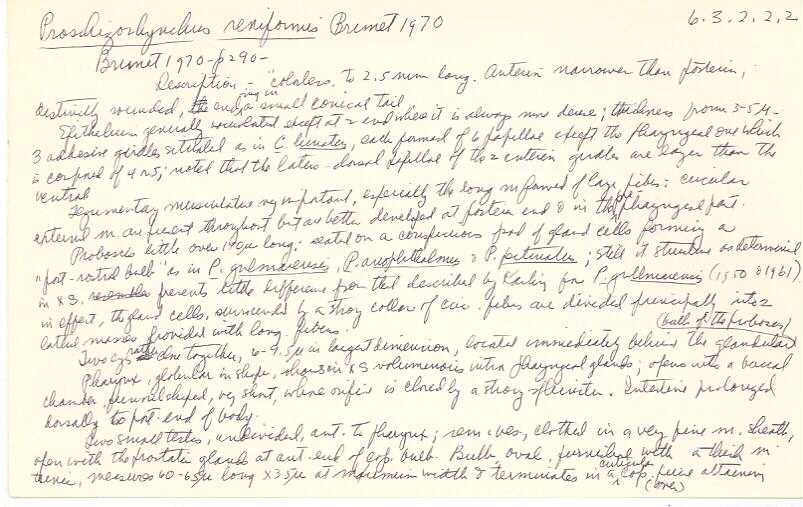 Proschizorhynchus reniformis Brunet 1970 6.3.2.2.2
Brunet 1970-p290-
Description - "colorless, to 2.5 mm long. Anterior narrower than posterior,
distinctly rounded, the end in a small conical tail
Epithelium generally vacuolated except at 2 end where it is always more dense; thickness from 3-5µ.
3 adhesive girdles situated as in C. , each formed of 6 papillae except the pharyngeal one which
is comprised of 4 or 5; noted that the latero-dorsal papillae of the 2 anterior girdles are larger than the
ventral
Tegumentary musculature very important, especially the long m formed of large fibers: circular
external m. are present throughout but are better developed at posterior end & in the pharyngeal part.
Proboscis little over 100µ long: seated on a conspicuous pad of gland cells forming a
"post-rostral bulb" as in P. gullmarensis, P. anophthalmus & P. pectinatus; still it structure as determined
in XS. presents little difference from that described by Karling for P. gullmarensis (1950 & 1961).
in effect, the gland cells, surrounded by a strong collar of circ. fibers are divided principally into 2
lateral masses provided with long. fibers. (bulb of the proboscis)
Two eyes rather close together, 6-9.5µ in largest dimension, located immediately behind the glandular
Pharynx, globular in shape, shows in XS voluminous intra pharyngeal glands; opens into a buccal
chamber funnel shaped, very short, whose orifice is closed by a strong sphincter. Intestine prolonged
dorsally to post. end of body.
Two small testes, undivided, ant. to pharynx; sem. ves, clothed in a very fine m. sheath,
open with the prostatic glands at ant. end of cop. bulb. Bulb, oval, furnished with a thick m
tunic, measures 60-65µ long X 35µ at maximum width & terminates in a cuticular cop. piece attaining
(over)